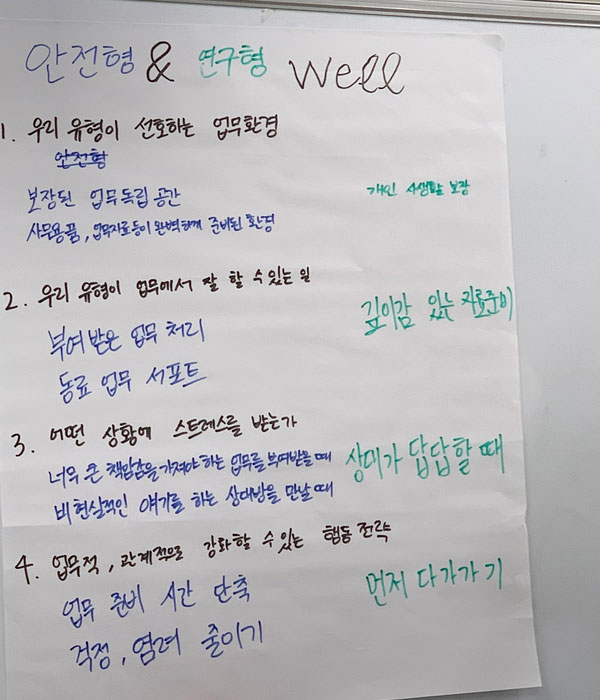 안전형 & 연구형 Well
1. 우리 유형이 선호하는 업무환경
안전형
보장된 업무독립 공간
개인 사생활 보장
사무용품, 업무자료등이 완벽하게 준비된 환경
2. 우리 유형이 업무에서 잘 할 수 있는 일
부여받은 업무 처리
깊이감 있는 자료준비
동료 업무 서포트
3. 어떤 상황에 스트레스를 받는가
너무 큰 책임감을 가져야 하는 업무를 부여받을 때
상대가 답답할 때
비현실적인 얘기를 하는 상대방을 만날 때
4. 업무적, 관계적으로 강화할 수 있는 행동 전략
업무 준비 시간 단축
먼저 다가가기
걱정, 염려 줄이기